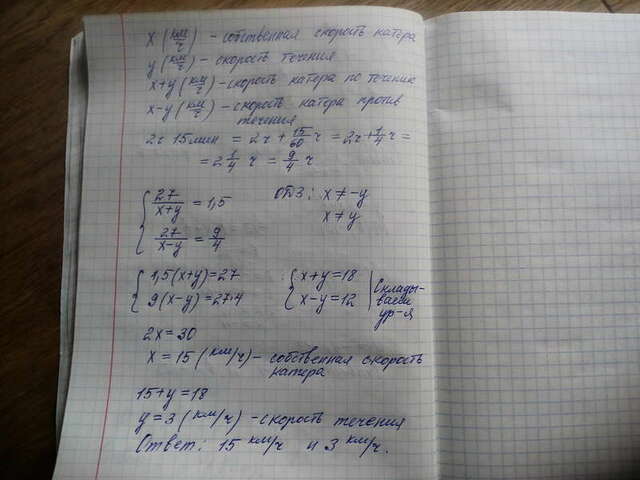 x (км/ч) – собственная скорость катера
y (км/ч) – скорость течения
x+y (км/ч) – скорость катера по течению
x-y (км/ч) – скорость катера против
течения
2ч 15мин = 2ч + 15/60 ч = 2ч + 1/4 ч =
= 2 1/4 ч = 9/4 ч
{ 27/(x+y) = 1,5 ОДЗ: x ≠ -y
x ≠ y
27/(x-y) = 9/4
{ 1,5(x+y)=27 { x+y=18 | Склады-
9(x-y)=27·4 x-y=12 | ваем
ур-я
2x=30
x=15 (км/ч) – собственная скорость
катера
15+y=18
y=3 (км/ч) – скорость течения
Ответ: 15 км/ч и 3 км/ч.